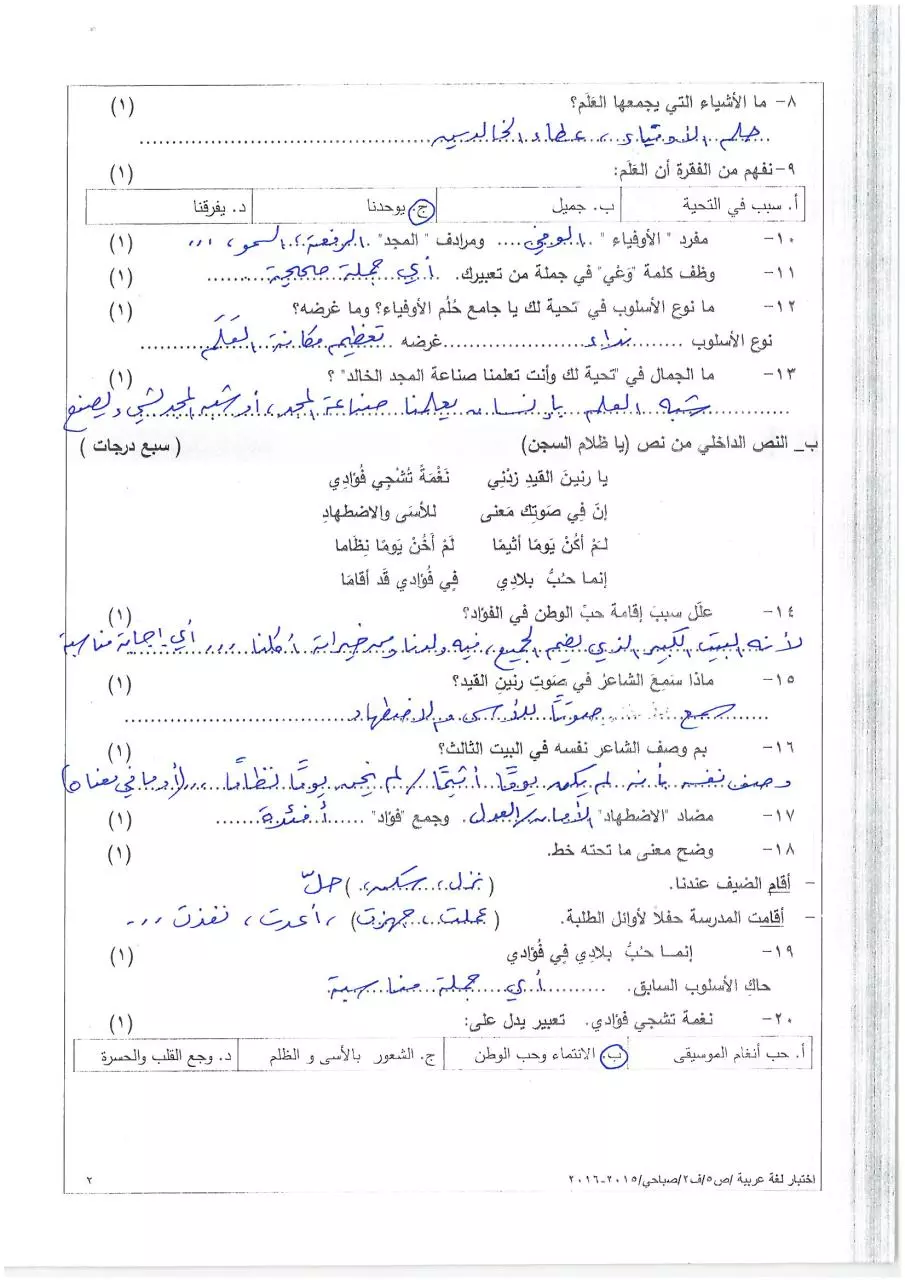 ٨- ما الأشياء التي يجمعها العَلَم؟ (١)
حلم الأوفياء، عطاء الخالدين
٩- نفهم من الفقرة أن العَلَم: (١)
أ. سبب في التحية ب. جميل ج. يوحدنا د. يفرقنا
١٠- مفرد "الأوفياء" الوفي ومرادف "المجد" الرفعة، السمو، ,,, (١)
١١- وظف كلمة "وَعْي" في جملة من تعبيرك. أي جملة صحيحة (١)
١٢- ما نوع الأسلوب في "تحية لك يا جامع حُلم الأوفياء؟ وما غرضه؟ (١)
نوع الأسلوب نداء غرضه تعظيم مكانة العَلَم
١٣- ما الجمال في "تحية لك وأنت تعلمنا صناعة المجد الخالد" ؟ (١)
شبه العلم بإنسان يعلمنا صناعة المجد، أو شبه المجد بشيء يصنع
ب_ النص الداخلي من نص (يا ظلام السجن) ( سبع درجات )
يا رنينَ القيدِ زدْنِي نَغْمَةً تُشْجِي فُؤادِي
إنّ فِي صَوتِك مَعنى للأسَى والاضطهادِ
لمْ أكُنْ يَومًا أثيمًا لمْ أخُنْ يَومًا نِظَاما
إنما حُبُّ بلادِي فِي فُؤادي قَد أقامَا
١٤- علّل سببَ إقامة حبّ الوطن في الفؤاد؟ (١)
لأنه البيت الكبير الذي يضم الجميع، فيه ولدنا ومن خيراته أكلنا ,,, أي إجابة مناسبة
١٥- ماذا سَمِعَ الشاعرُ في صَوتِ رنينِ القيد؟ (١)
سمع صوتًا للأسى والاضطهاد
١٦- بم وصف الشاعر نفسه في البيت الثالث؟ (١)
وصف نفسه بأنه لم يكن يومًا أثيمًا / لم يخن يومًا نظامًا ,,, (أو ما في معناه)
١٧- مضاد "الاضطهاد" الأمان/العدل وجمع "فؤاد" أفئدة (١)
١٨- وضح معنى ما تحته خط. (١)
- أقام الضيف عندنا. (نزل، سكن،) حلّ
- أقامت المدرسة حفلاً لأوائل الطلبة. (عملت، جهزت)، أعدت، نفذت ,,,
١٩- إنمـا حُبُّ بلادِي فِي فُؤادي (١)
حاكِ الأسلوب السابق. أي جملة مناسبة
٢٠- نغمة تشجي فؤادي. تعبير يدل على: (١)
أ. حب أنغام الموسيقى ب. الانتماء وحب الوطن ج. الشعور بالأسى و الظلم د. وجع القلب والحسرة
اختبار لغة عربية /ص٥/ف٢/صباحي/٢٠١٥-٢٠١٦ ٢